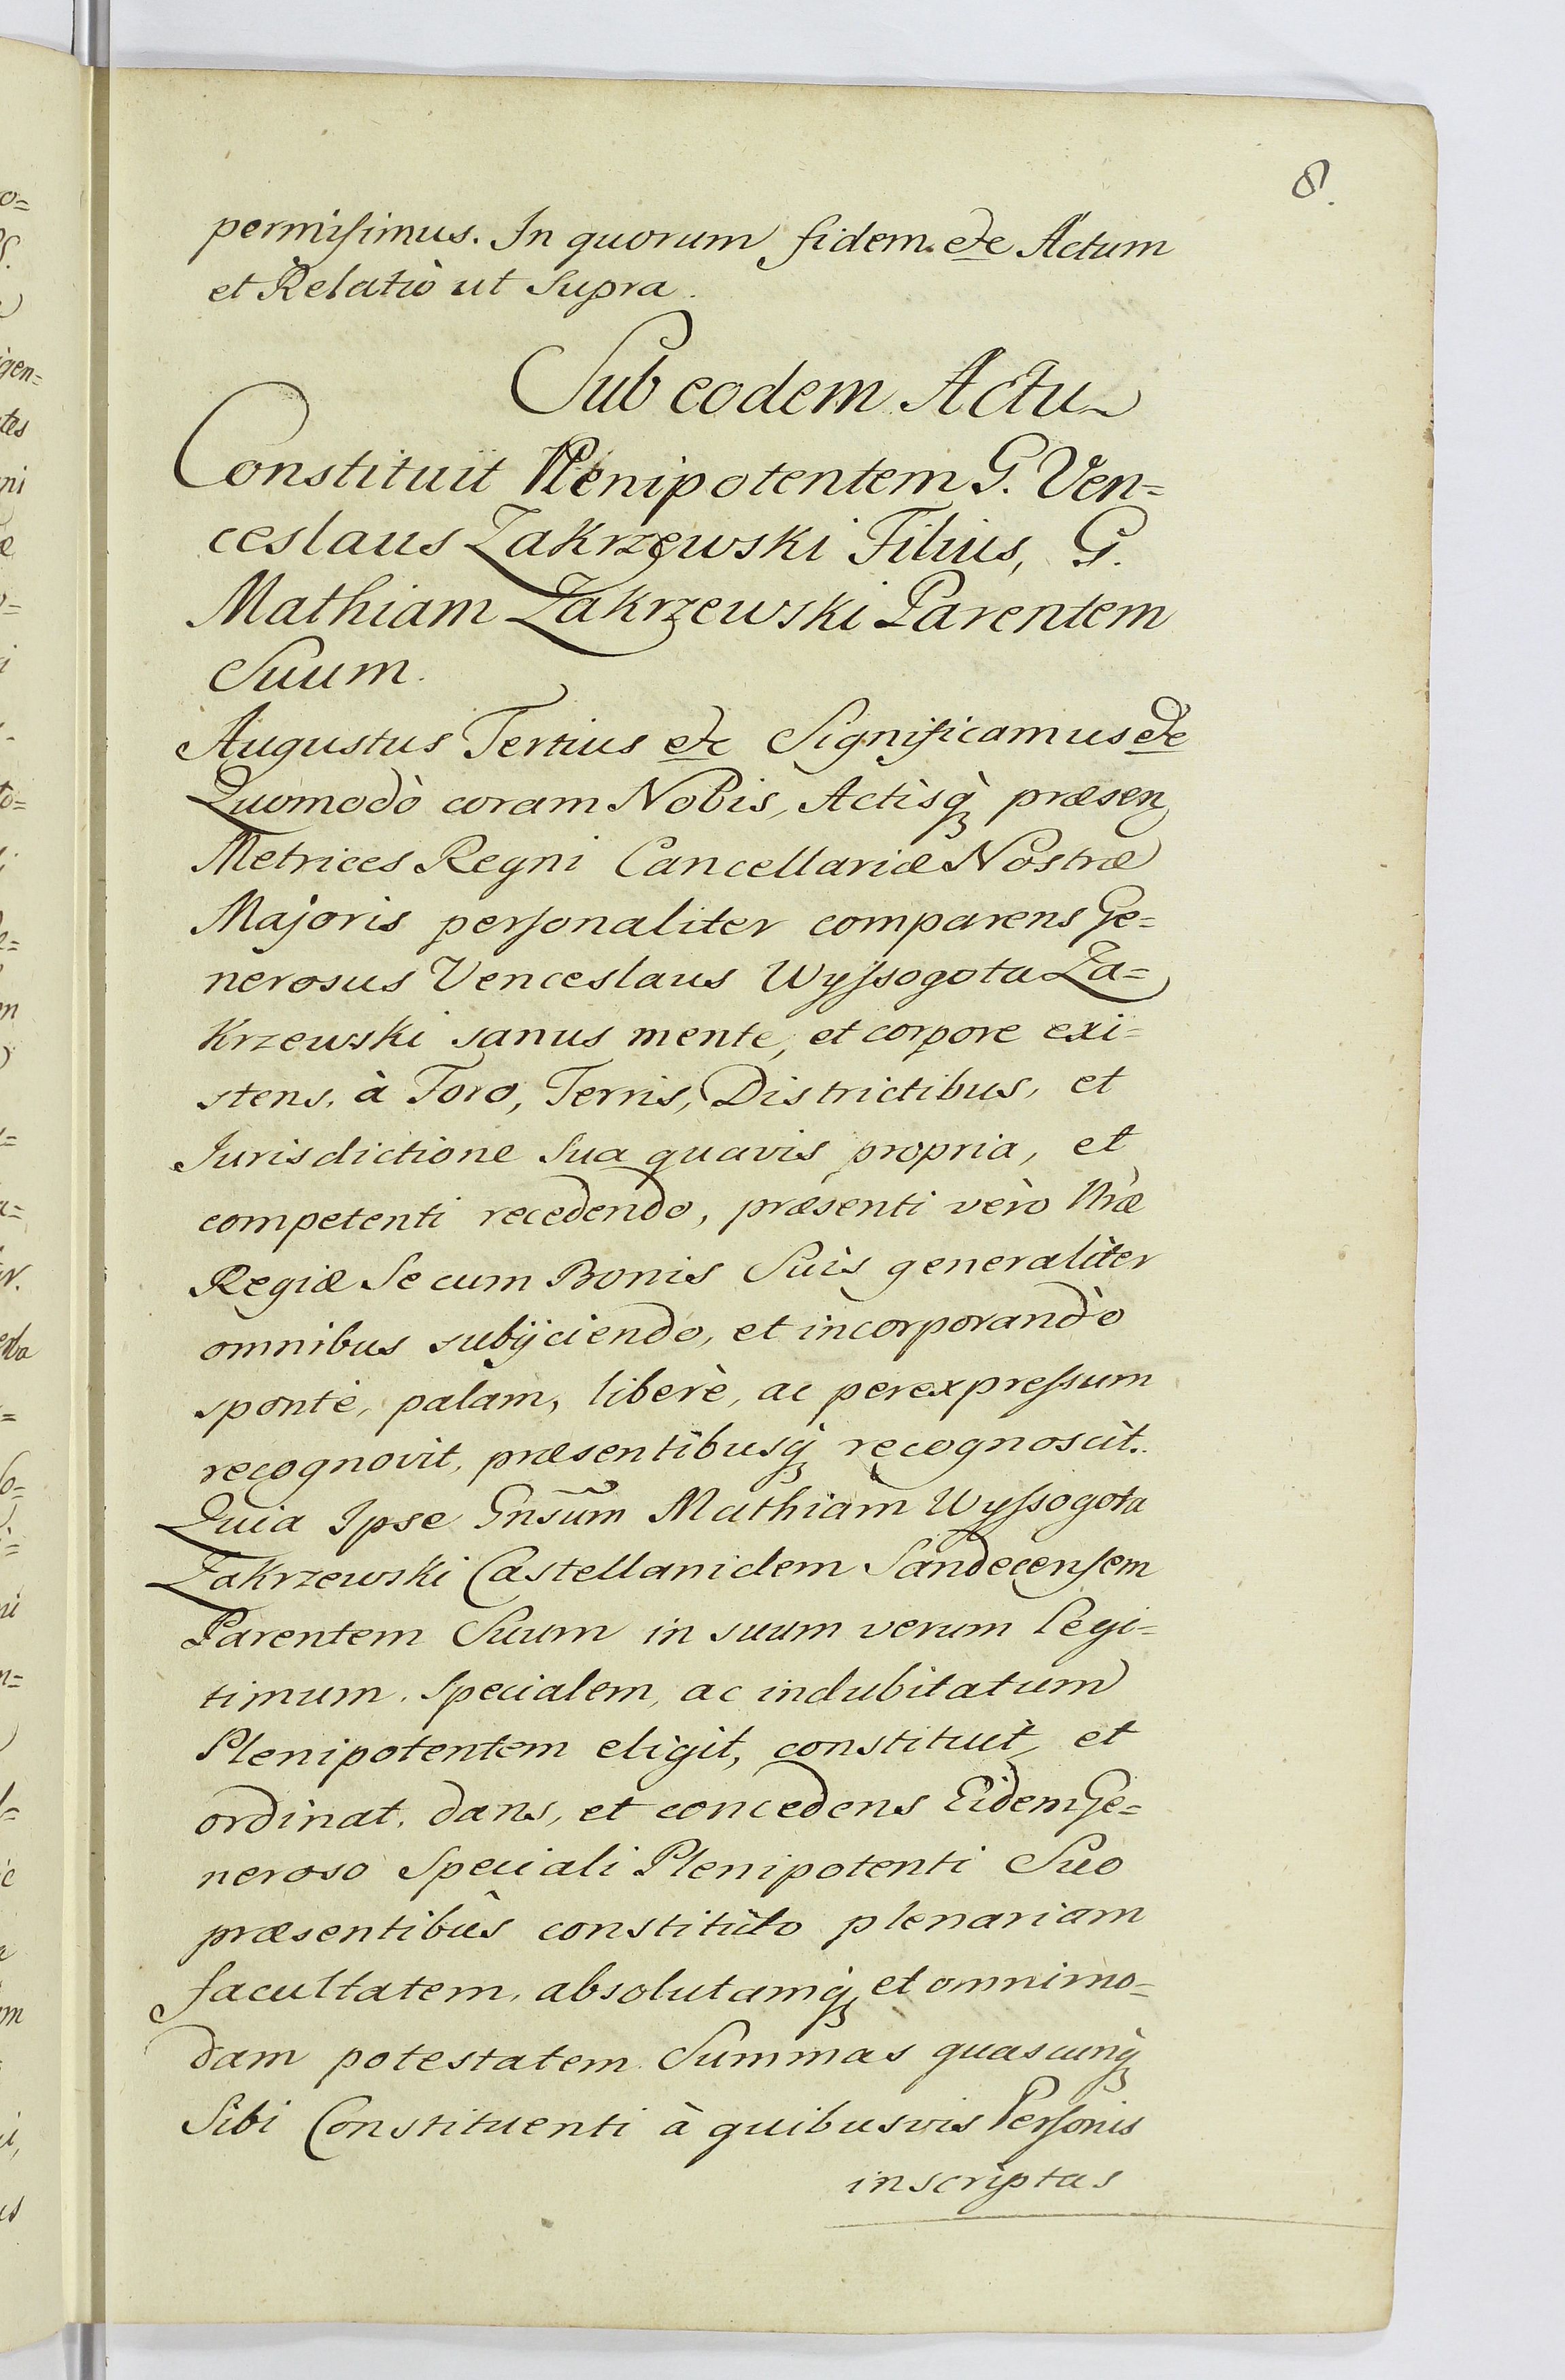 8.
permisimus. In quorum fidem etc Actum
et Relatiò ut supra.
Sub eodem Actu
Constituit Plenipotentem G. Ven=
ceslaus Zakrzewski Filius, G.
Mathiam Zakrzewski Parentem
Suum.
Augustus Tertius etc Significamus etc
Quomodò coram Nobis, Actisq̀ præsen
Metrices Regni Cancellariæ Nostræ
Majoris personaliter comparens Ge=
nerosus Venceslaus Wyssogota Za=
krzewski sanus mente, et corpore exi=
stens, à Foro, Terris, Districtibus, et
Jurisdictione Sua quavis propria, et
competenti recedendo, præsenti vèro Nræ
Regiæ Se cum Bonis Suis generaliter
omnibus subijciendo, et incorporandò
spontè, palam, liberè, ac per expressum
recognovit, præsentibusq̀ recognoscit.
Quia Ipse Gnsum Mathiam Wyssogota
Zakrzewski Castellanidem Sandecensem
Parentem Suum in suum verum legi=
timum, specialem, ac indubitatum
Plenipotentem eligit, constituit, et
ordinat, dans, et concedens Eidem Ge=
neroso Speciali Plenipotenti Suo
præsentibus constituto plenariam
facultatem, absolutamq̀ et omnimo=
dam potestatem Summas quascunq̀
Sibi Constituenti à quibusvis Personis
inscriptas